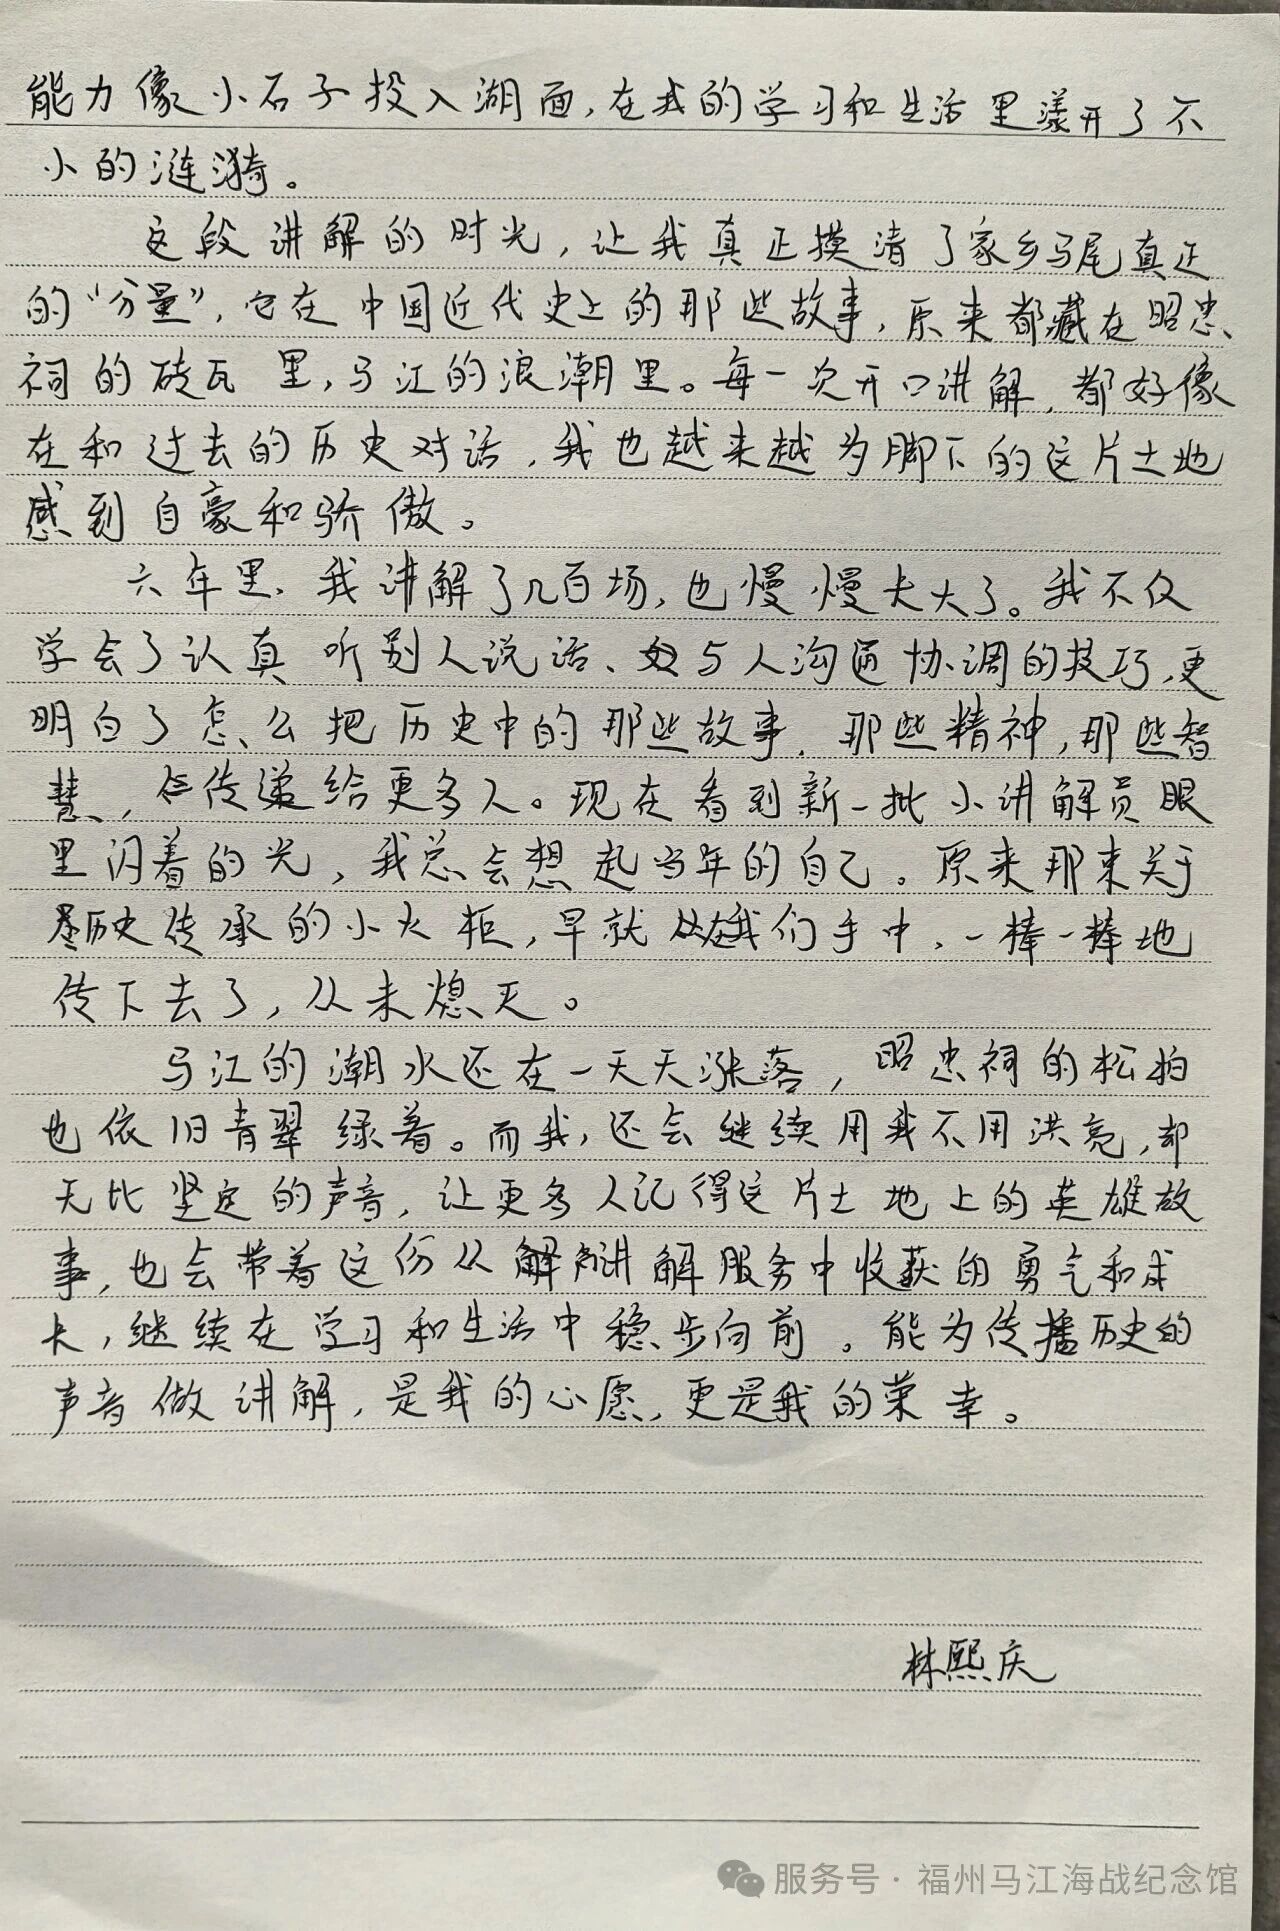 能力像小石子投入湖面，在我的学习和生活里漾开了不
小的涟漪。
这段讲解的时光，让我真正摸清了家乡马尾真正
的“分量”，它在中国近代史上的那些故事，原来都藏在昭忠
祠的砖瓦里，马江的浪潮里。每一次开口讲解，都好像
在和过去的历史对话，我也越来越为脚下的这片土地
感到自豪和骄傲。
六年里，我讲解了几百场，也慢慢长大了。我不仅
学会了认真听别人说话、与人沟通协调的技巧，更
明白了怎么把历史中的那些故事，那些精神，那些智
慧，传递给更多人。现在看到新一批小讲解员眼
里闪着的光，我总会想起当年的自己。原来那束关于
历史传承的小火炬，早就在我们手中，一棒一棒地
传下去了，从未熄灭。
马江的潮水还在一天天涨落，昭忠祠的松柏
也依旧青翠绿着。而我，还会继续用我不用洪亮，却
无比坚定的声音，让更多人记得这片土地上的英雄故
事，也会带着这份从讲解服务中收获的勇气和成
长，继续在学习和生活中稳步向前。能为传播历史的
声音做讲解，是我的心愿，更是我的荣幸。
林熙庆
服务号·福州马江海战纪念馆